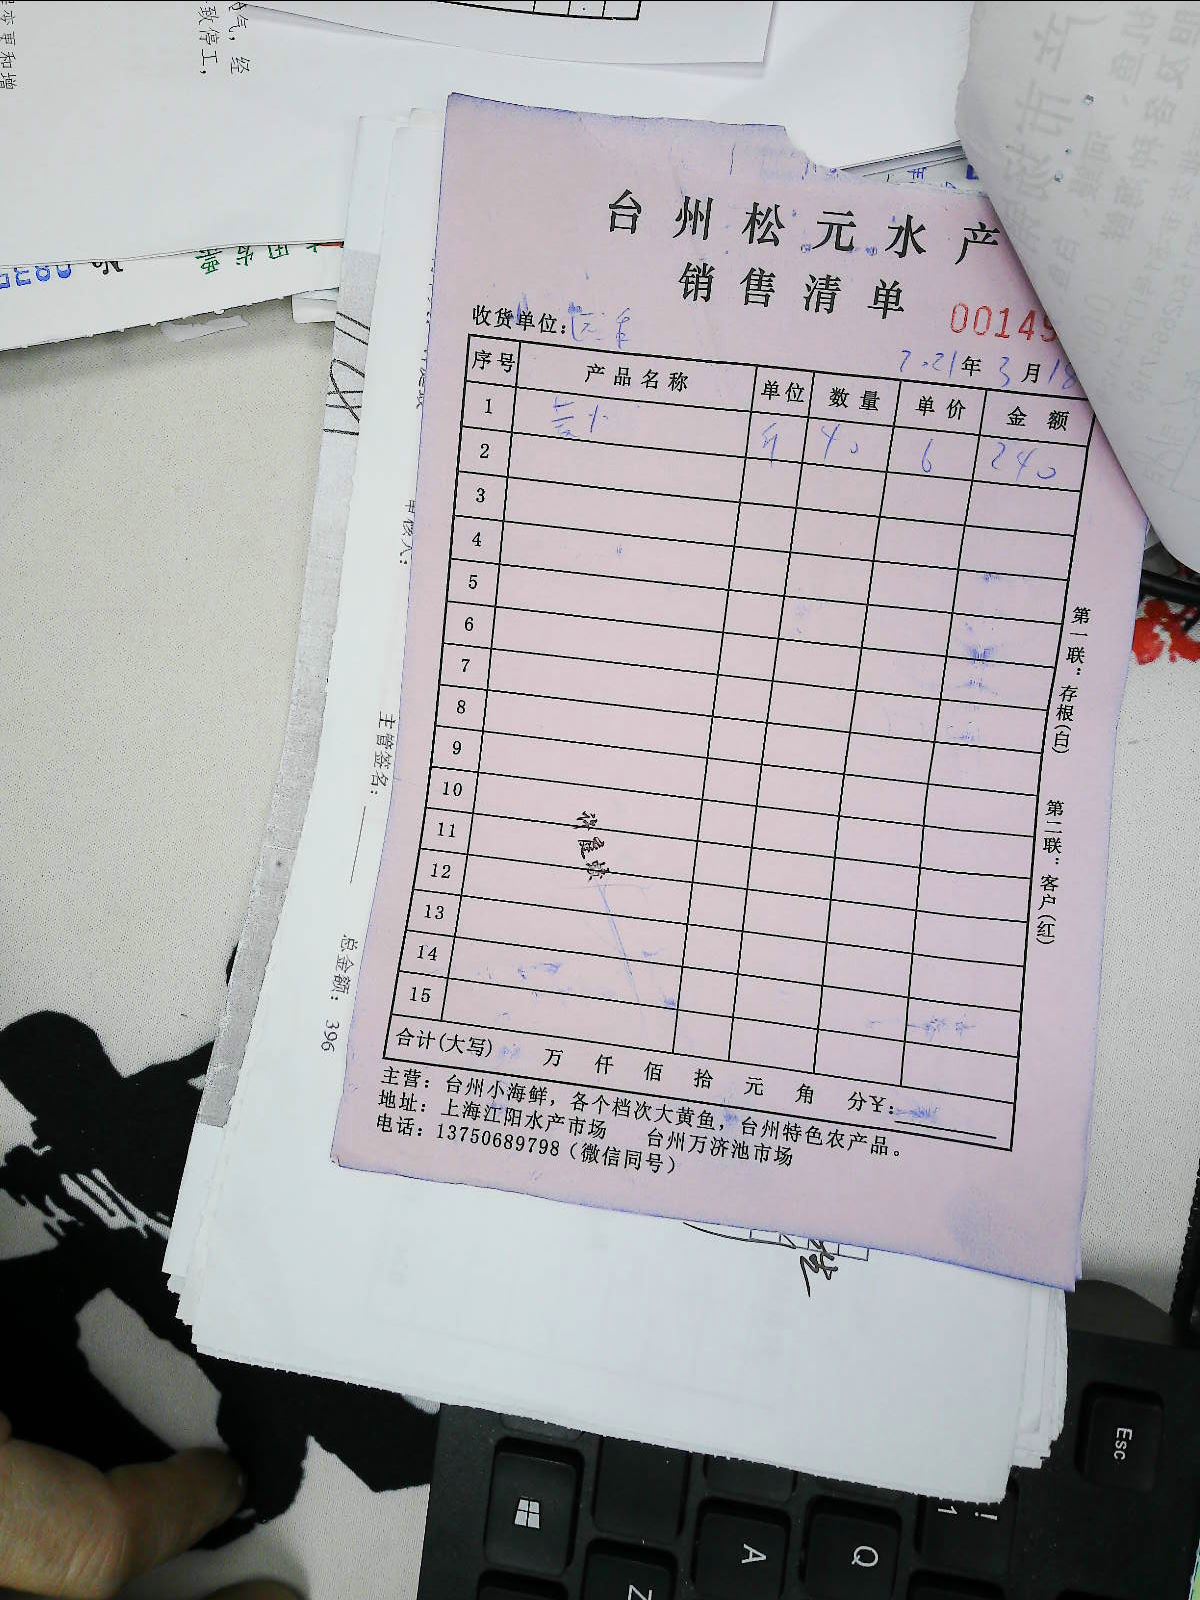 气，经
致停工，
变更和增
台州松元水产
销售清单
00145
收货单位：
2021年3月18
序号 产品名称 单位 数量 单价 金额
1 斤 40 6 240
2
3
4
5
6
7
8
9
10
11
12
13
14
15
合计(大写) 万 仟 佰 拾 元 角 分¥：
主营：台州小海鲜，各个档次大黄鱼，台州特色农产品。
地址：上海江阳水产市场 台州万济池市场
电话：13750689798（微信同号）
第一联：存根(白)
第二联：客户(红)
审核人：
主管签名：
总金额：396
Esc
! 1
Q
A
Z